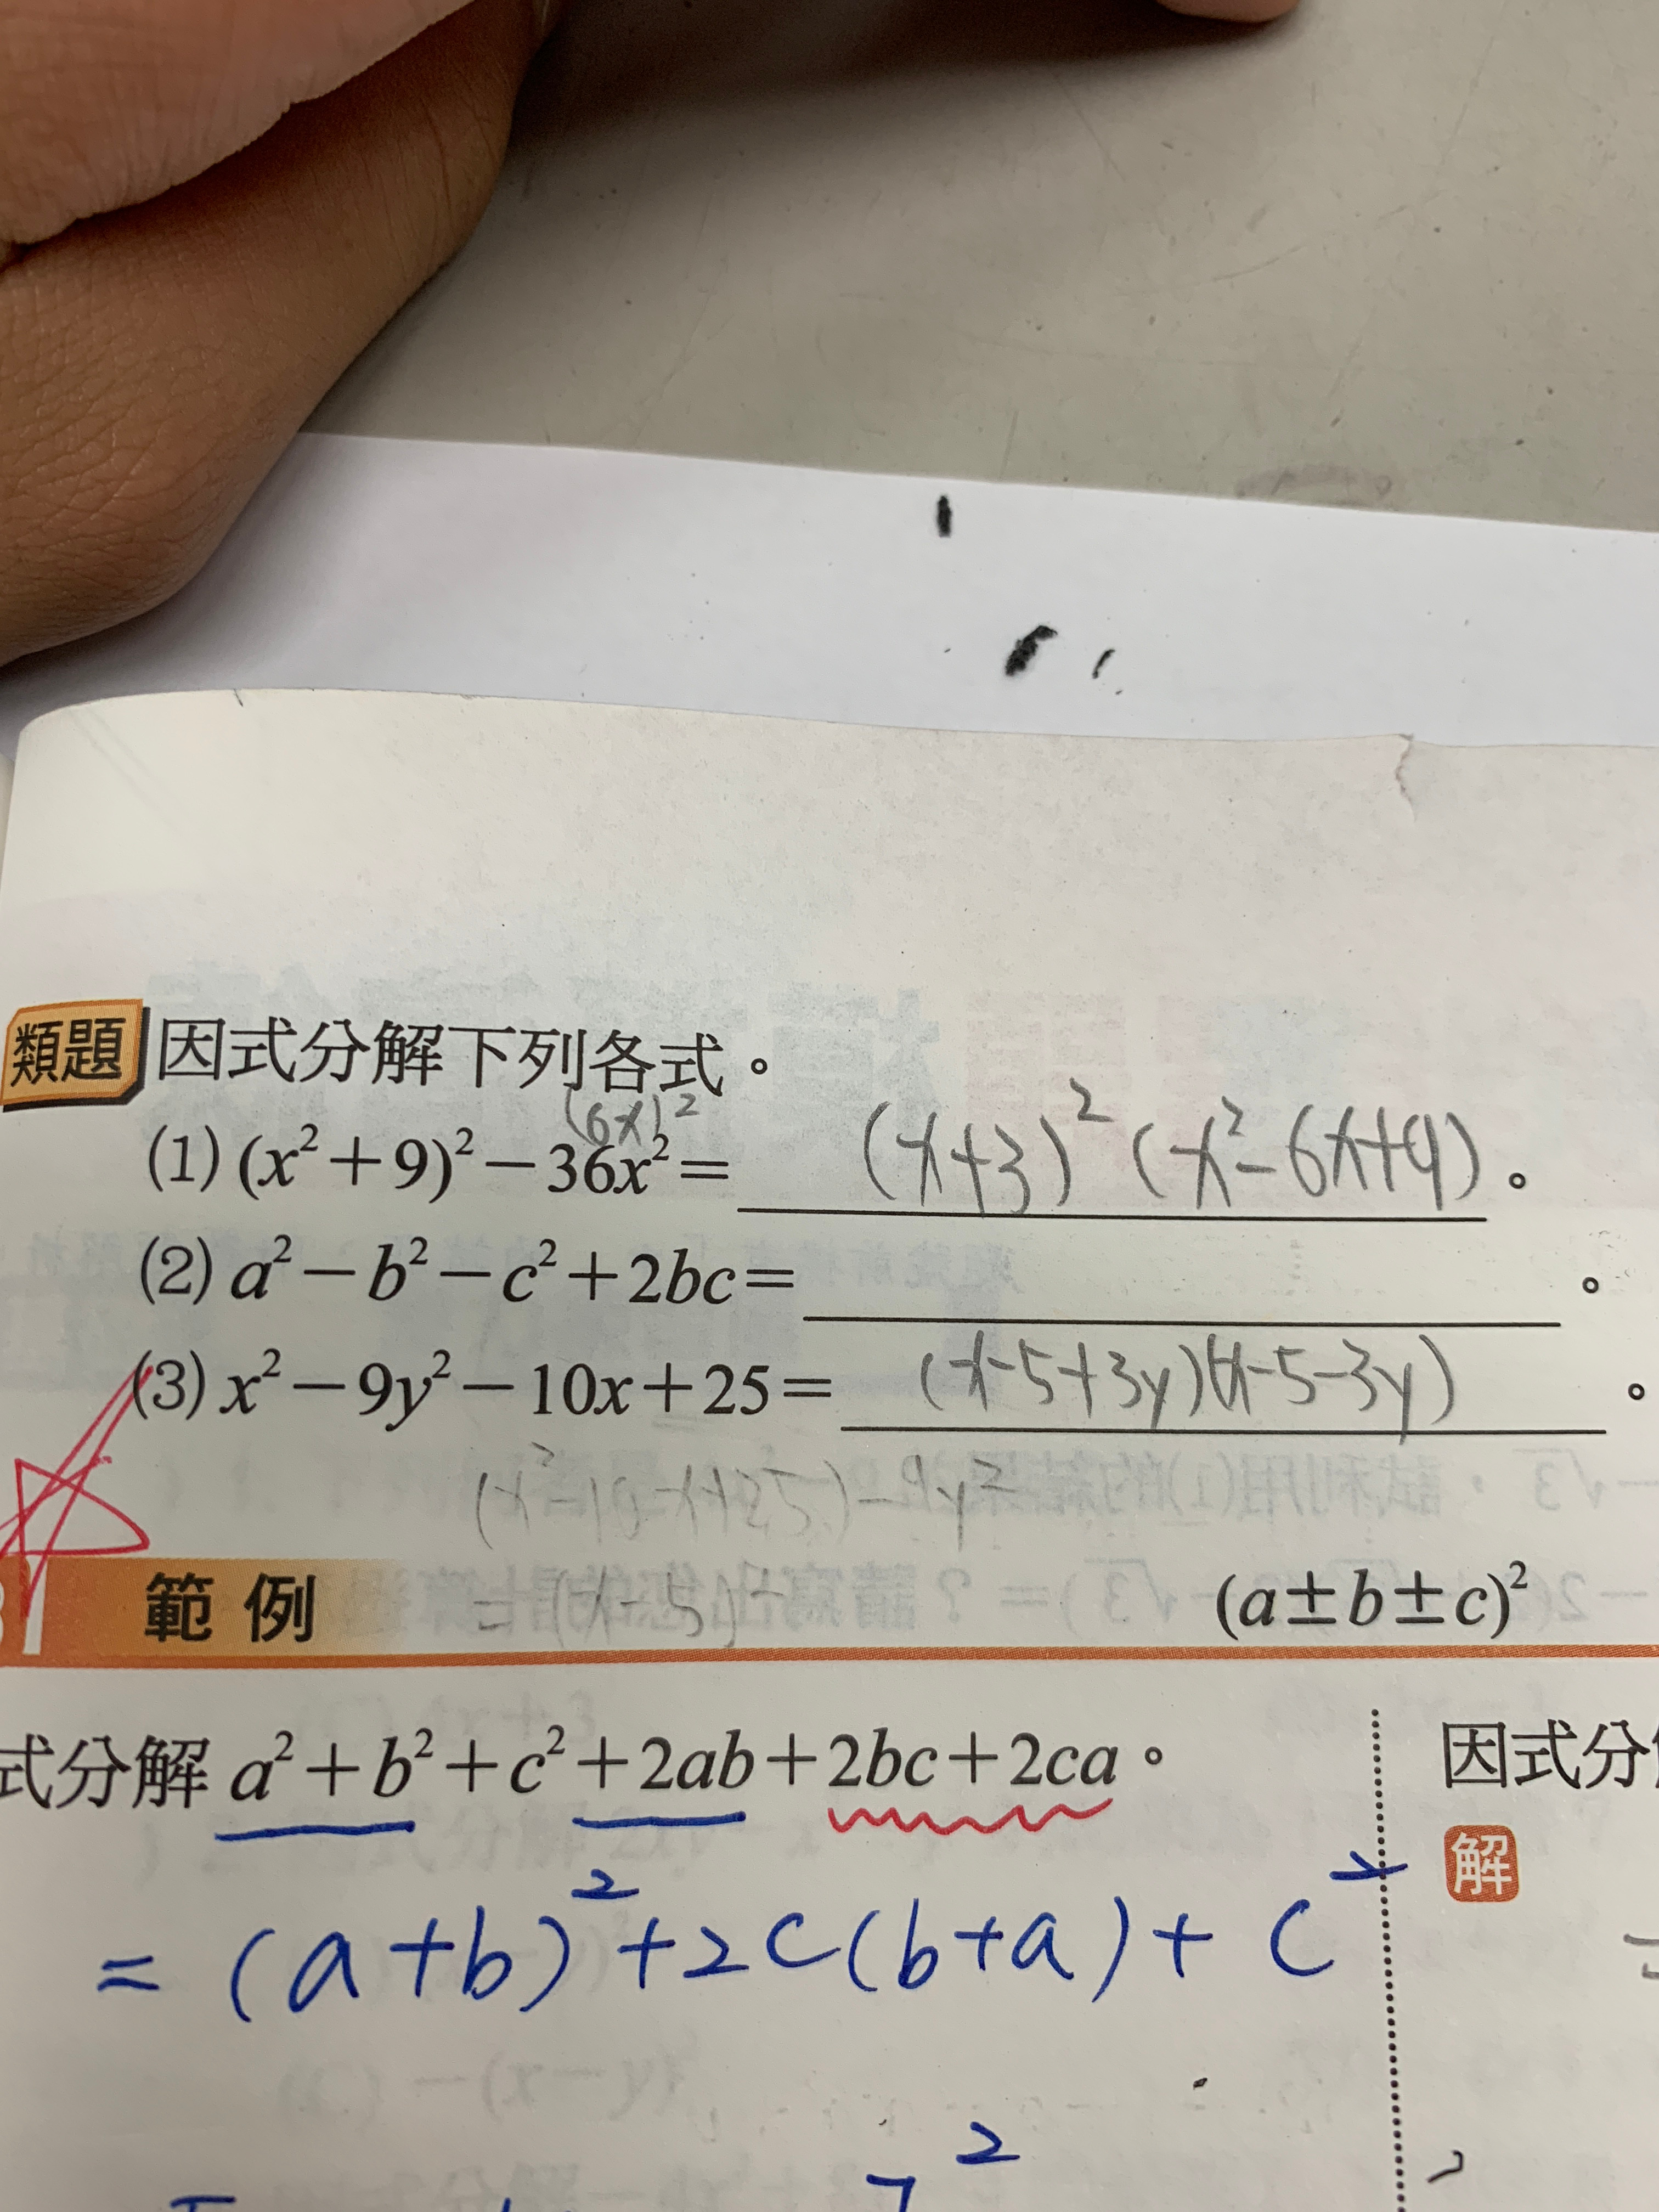 類題 因式分解下列各式。
(6x)²
(1) (x²+9)²−36x²= (x+3)²(x²-6x+9)。
(2) a²−b²−c²+2bc= 。
(3) x²−9y²−10x+25= (x-5+3y)(x-5-3y) 。
(x²-10x+25)-9y²
=(x-5)²
範例 (a±b±c)²
式分解 a²+b²+c²+2ab+2bc+2ca。
因式分
解
= (a+b)²+2c(b+a)+c²